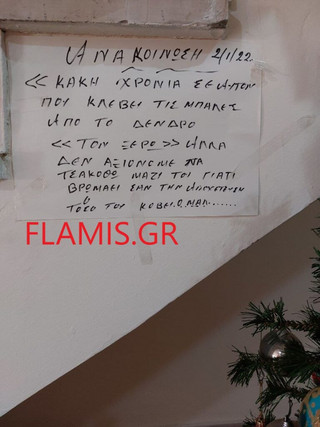 ΑΝΑΚΟΙΝΩΣΗ 2/1/22
<< ΚΑΚΗ ΧΡΟΝΙΑ ΣΕ ΑΥΤΟΝ
ΠΟΥ ΚΛΕΒΕΙ ΤΙΣ ΜΠΑΛΕΣ
ΑΠΟ ΤΟ ΔΕΝΔΡΟ
<< ΤΟΝ ΞΕΡΩ >> ΑΛΛΑ
ΔΕΝ ΑΞΙΟΝΟΜΕ ΝΑ
ΤΣΑΚΟΘΩ ΜΑΖΙ ΤΟΥ ΓΙΑΤΙ
ΒΡΩΜΑΕΙ ΣΑΝ ΤΗΝ
ΤΟΣΟ ΤΟΥ ΚΟΒΕΙ
FLAMIS.GR